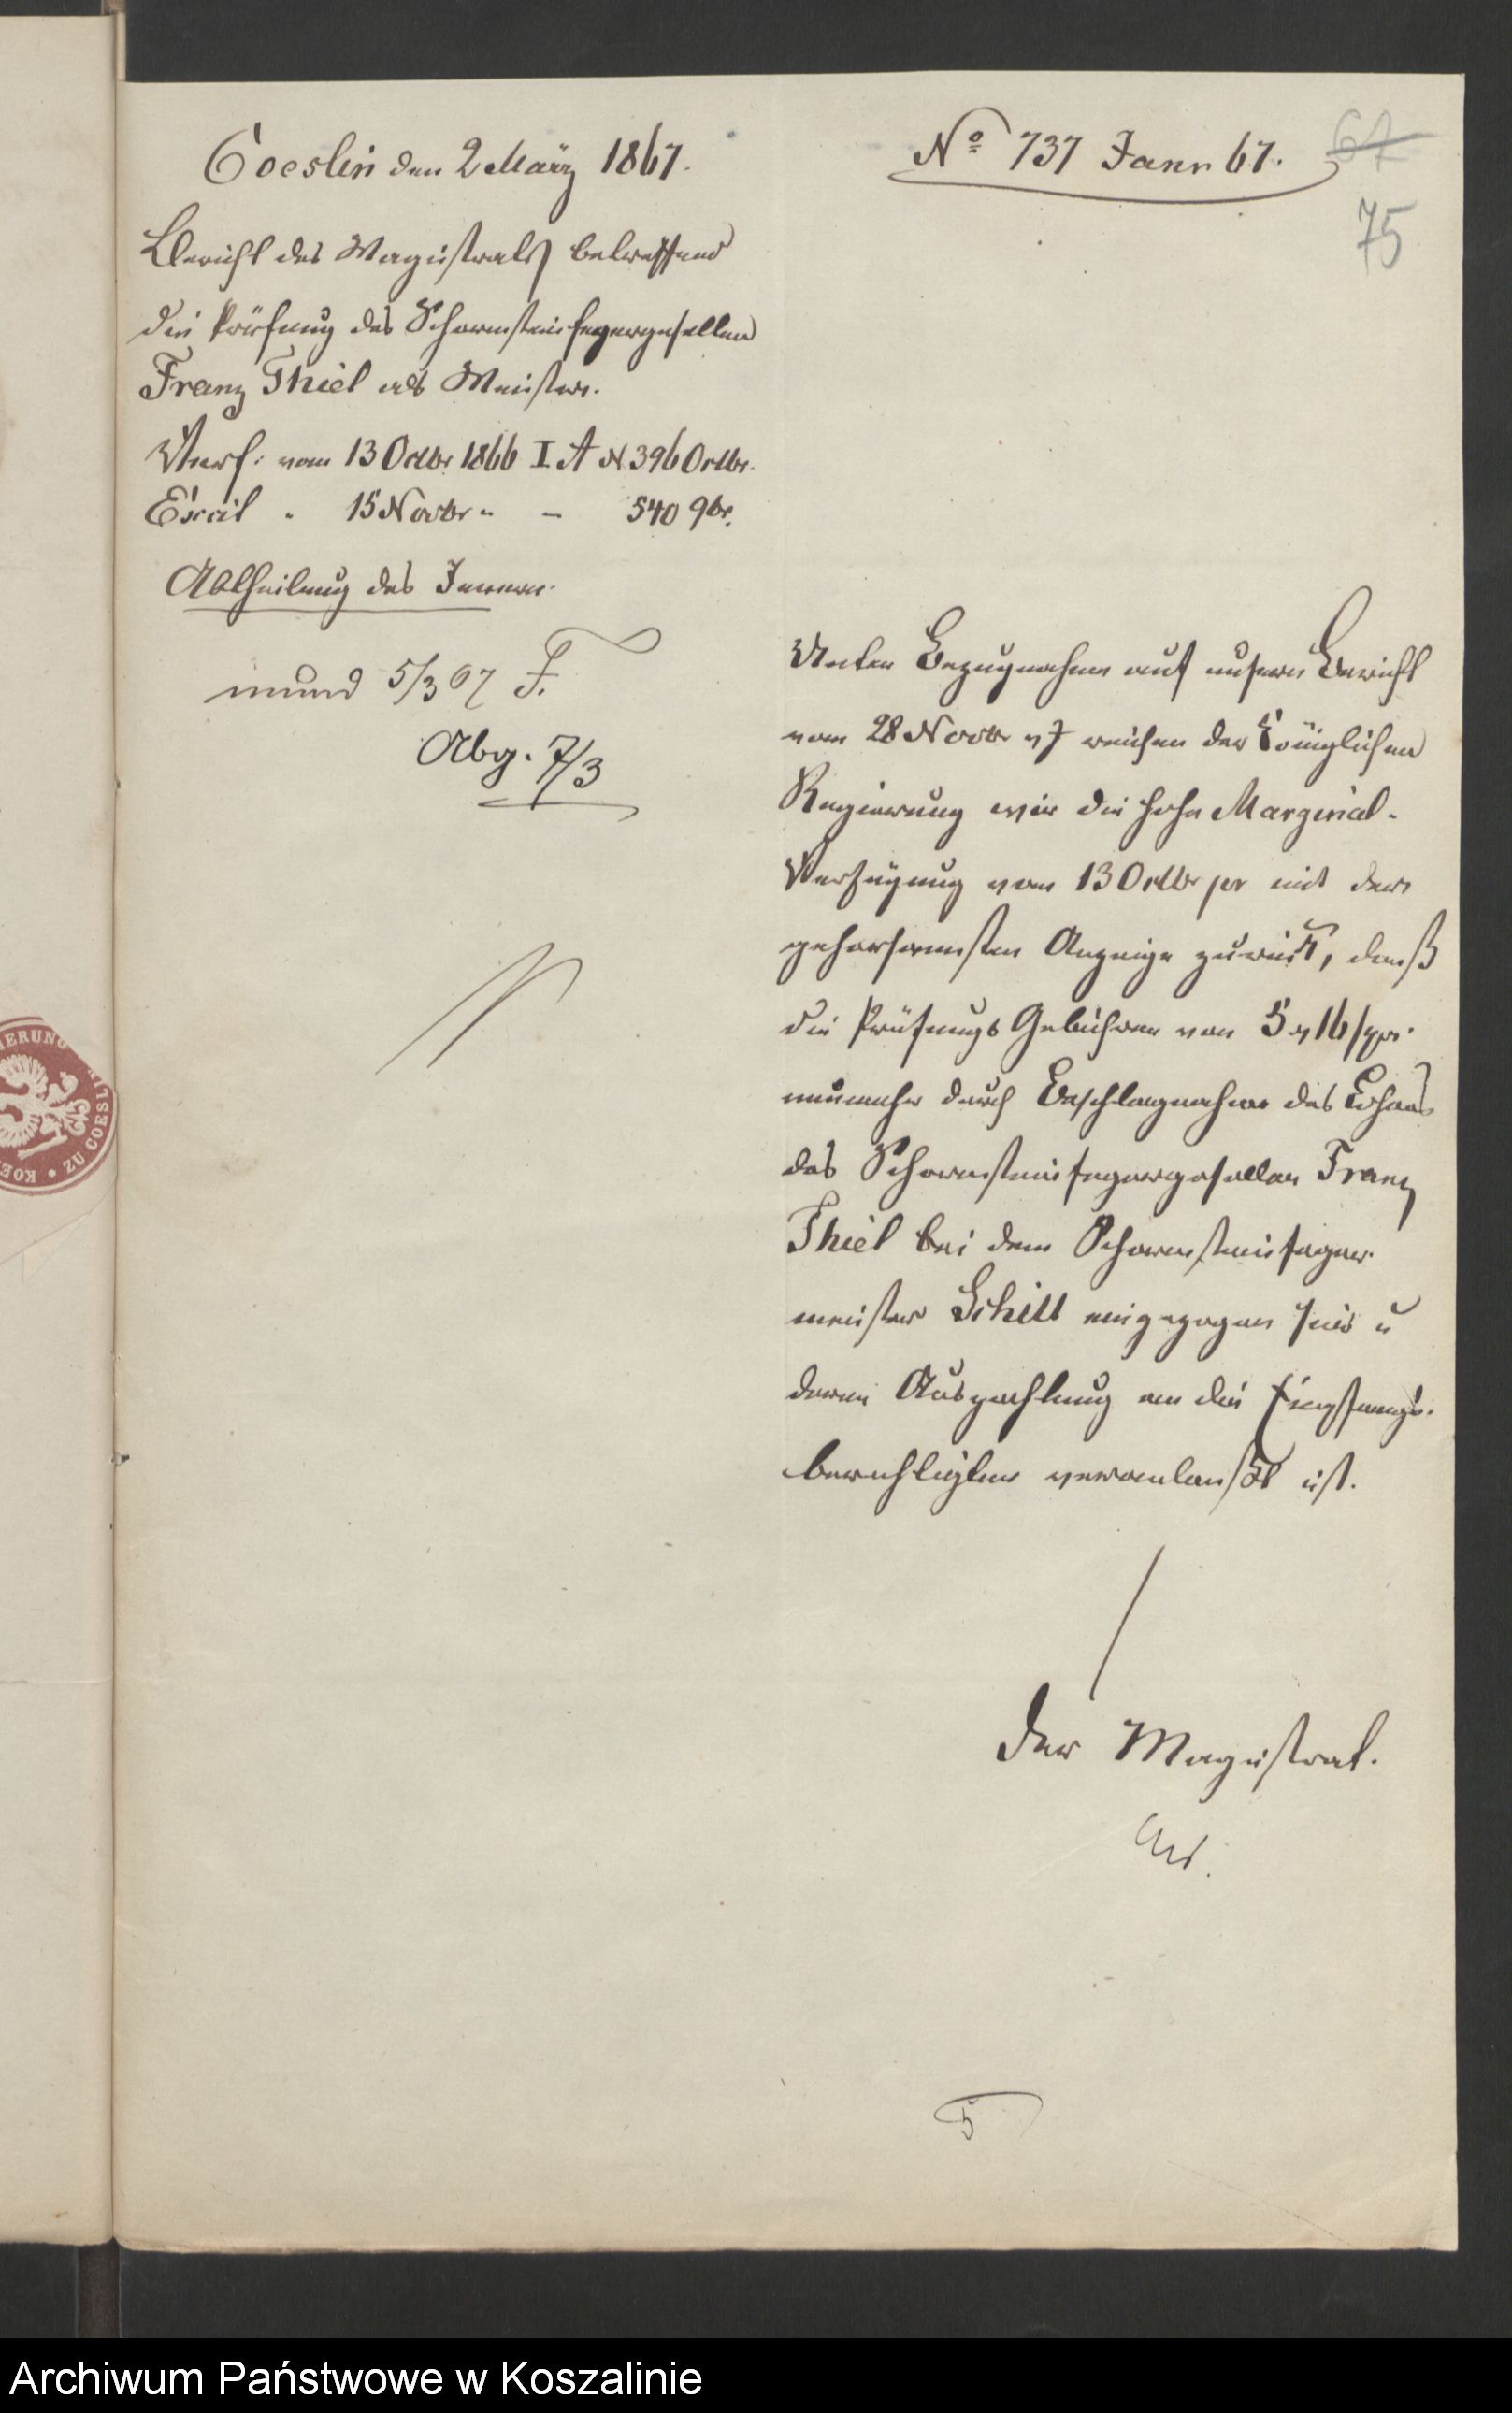 Coeslin den 2 März 1867.
Bericht des Magistrats betreffend
die Prüfung des Schornsteinfegergesellen
Franz Thiel als Meister.
Verf: vom 13 Octbr 1866 I. A N 396 Octbr.
Excit " 15 Novbr " – 540 9br.
Abtheilung des Innern.
mund 5/3 67 F.
Abg. 7/3
No 737 Janr 67.
67
75
Unter Bezugnahme auf unsern Bericht
vom 28 Novbr v J reichen der Königlichen
Regierung wir die hohe Marginal-
Verfügung vom 13 Octbr pr mit der
gehorsamsten Anzeige zurück, daß
die Prüfungs Gebühren von 5 16 sgr.
nunmehr durch Beschlagnahme des Lohns
des Schornsteinfegergesellen Franz
Thiel bei dem Schornsteinfeger
meister Schill eingezogen sind u
deren Auszahlung an die Empfangs-
berechtigten veranlaßt ist.
Der Magistrat.
5
IERUNG
ZU COESL
KOE
Archiwum Państwowe w Koszalinie